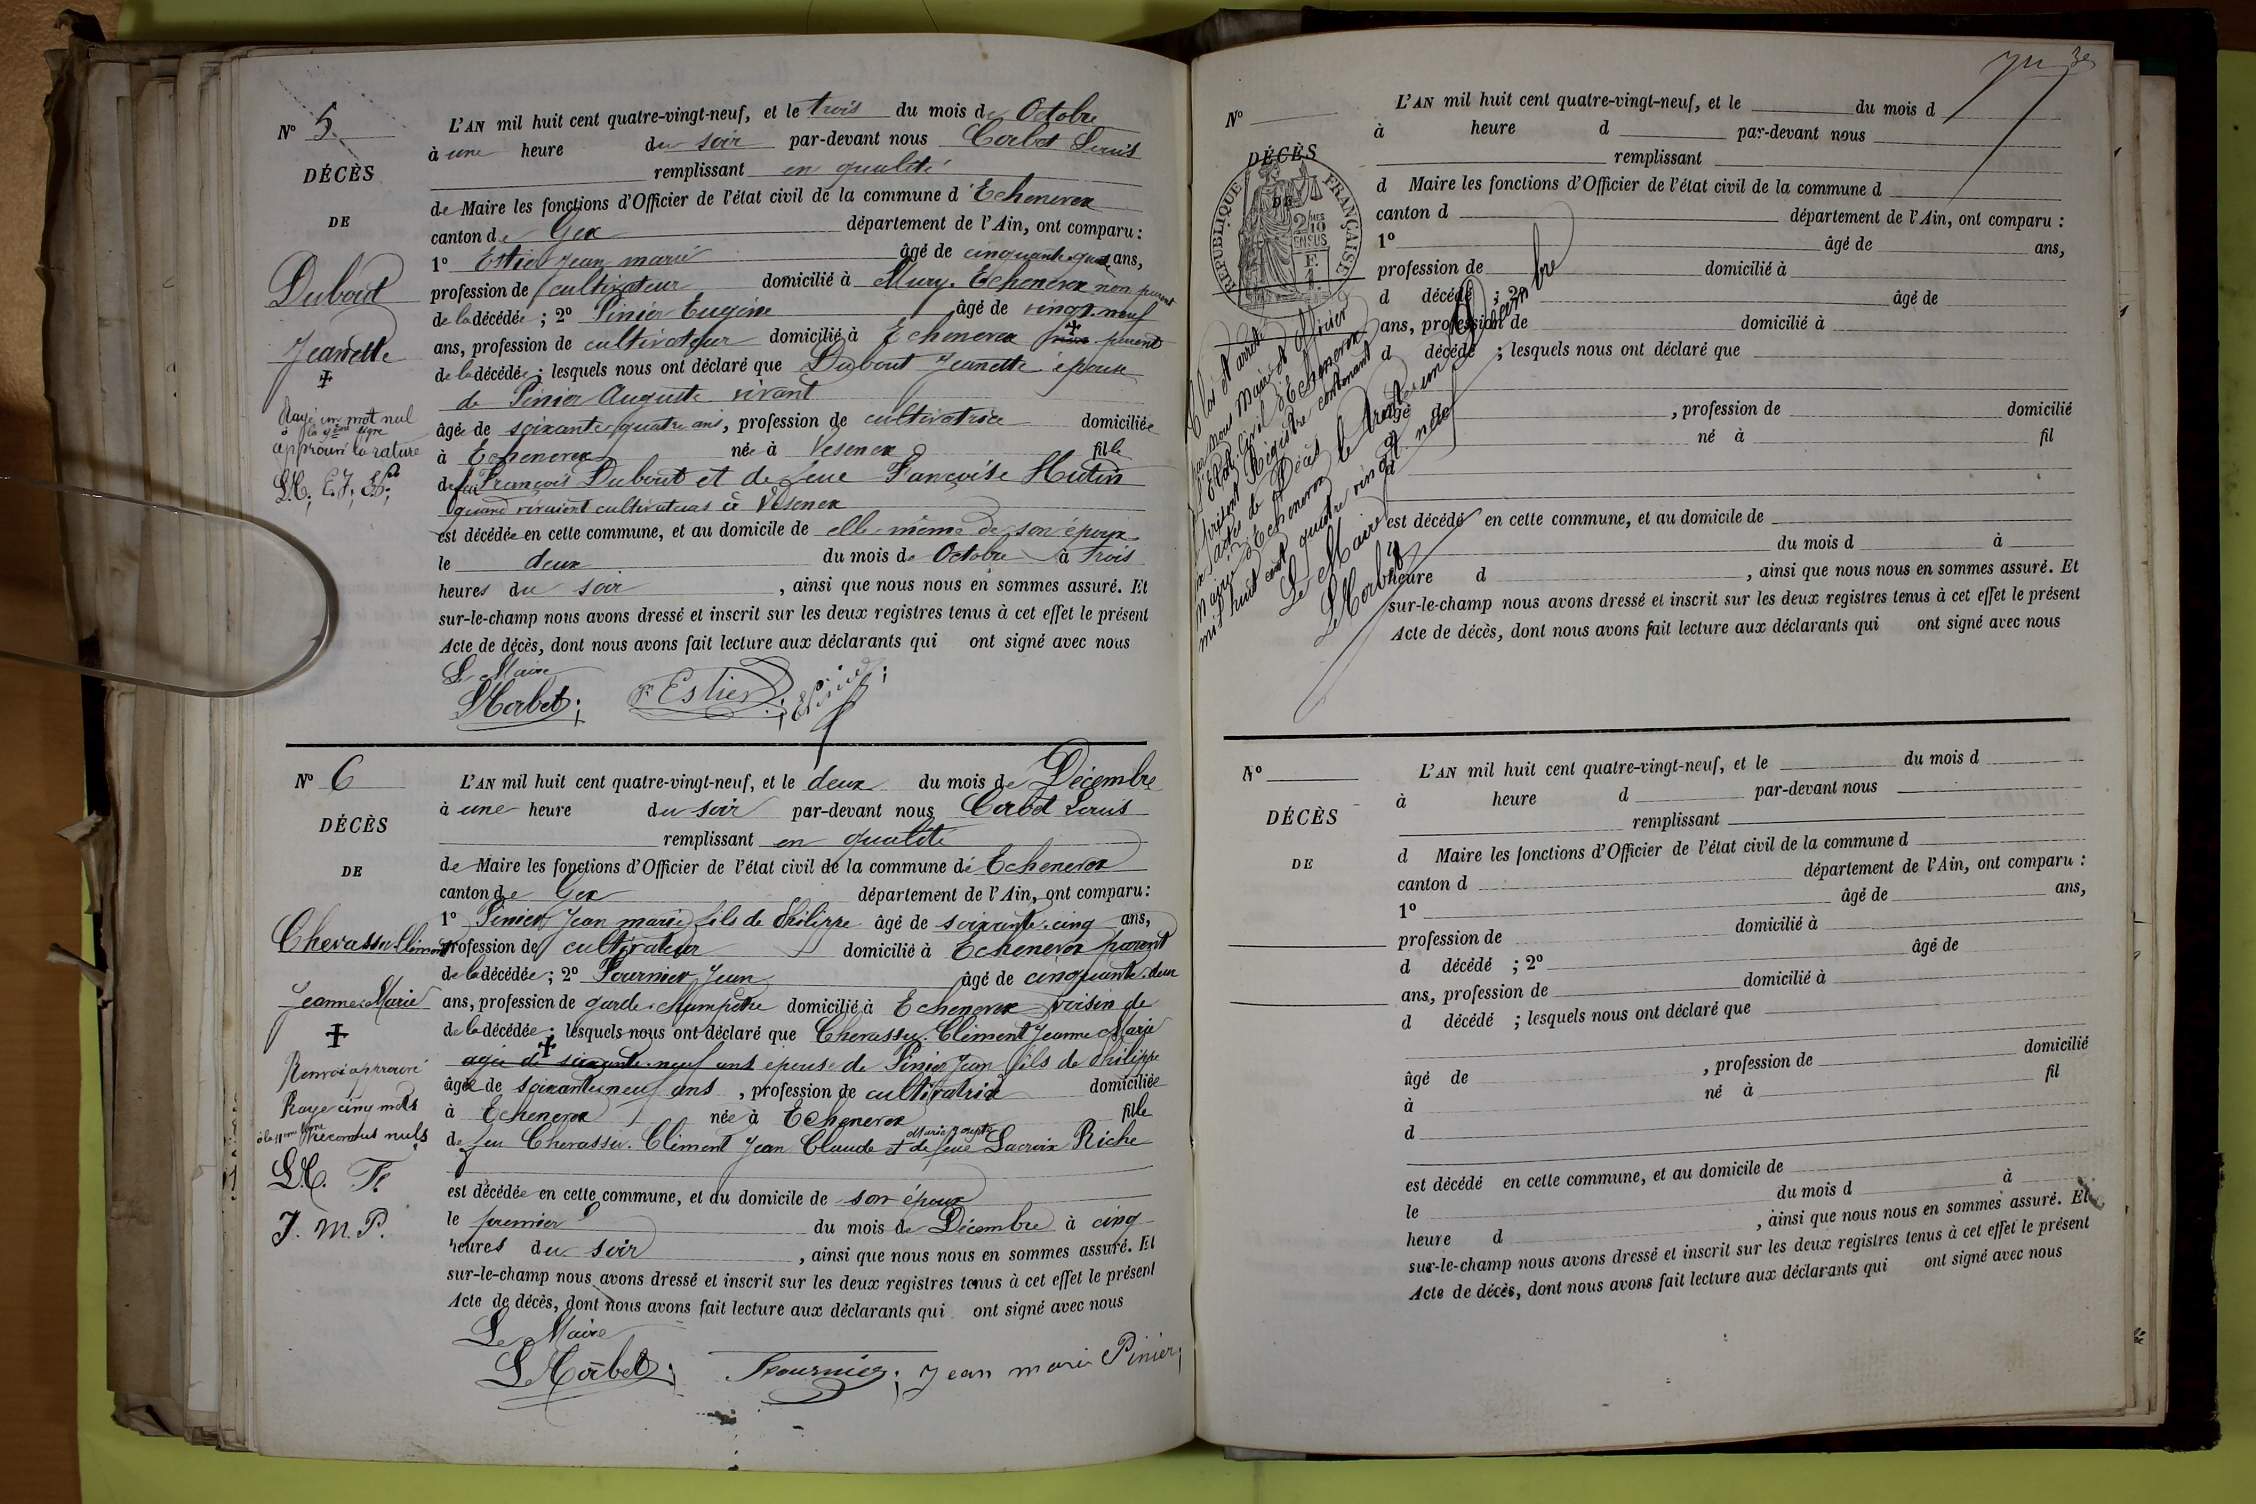 N° 5
DÉCÈS
DE
Dubout
Jeanette
Rayé un mot nul
à la 9ème ligne
approuvé la rature
L.C. E.J. E.P.
L'AN mil huit cent quatre-vingt-neuf, et le trois du mois de Octobre
à une heure du soir par-devant nous Corbet Louis
remplissant en qualité
de Maire les fonctions d'Officier de l'état civil de la commune d'Echenevex
canton de Gex département de l'Ain, ont comparu :
1° Estier Jean marie âgé de cinquante ans,
profession de cultivateur domicilié à Mury. Echenevex non parent
de la décédée ; 2° Pinier Eugène âgé de vingt-neuf
ans, profession de cultivateur domicilié à Echenevex parent
de la décédée ; lesquels nous ont déclaré que Dubout Jeanette épouse
de Pinier Auguste vivant
âgé de soixante quatre ans, profession de cultivatrice domiciliée
à Echenevex née à Vesenex fille
de feu François Dubout et de feue Fancoise Hutin
quand vivaient cultivateurs à Vesenex
est décédée en cette commune, et au domicile de elle-même de son époux
le deux du mois de Octobre à trois
heures du soir, ainsi que nous nous en sommes assuré. Et
sur-le-champ nous avons dressé et inscrit sur les deux registres tenus à cet effet le présent
Acte de décès, dont nous avons fait lecture aux déclarants qui ont signé avec nous
Le Maire
L Corbet; Estier; E Pinier;
N° 6
DÉCÈS
DE
Chevassu-Clément
Jeanne Marie
Renvoi approuvé
Rayé cinq mots
à la 11me ligne reconnus nuls
L.C. F.
J. M. P.
L'AN mil huit cent quatre-vingt-neuf, et le deux du mois de Décembre
à une heure du soir par-devant nous Corbet Louis
remplissant en qualité
de Maire les fonctions d'Officier de l'état civil de la commune de Echenevex
canton de Gex département de l'Ain, ont comparu :
1° Pinier Jean marie fils de Philippe âgé de soixante-cinq ans,
profession de cultivateur domicilié à Echenevex parent
de la décédée ; 2° Fournier Jean âgé de cinquante-deux
ans, profession de garde-champêtre domicilié à Echenevex voisin de
de la décédée ; lesquels nous ont déclaré que Chevassu-Clément Jeanne Marie
agée de soixante-neuf ans epouse de Pinier Jean fils de Philippe
âgée de soixante neuf ans, profession de cultivatrice domiciliée
à Echenevex née à Echenevex fille
de feu Chevassu-Clément Jean Claude et de feue Lacroix Riche
est décédée en cette commune, et au domicile de son époux
le premier du mois de Décembre à cinq
heures du soir, ainsi que nous nous en sommes assuré. Et
sur-le-champ nous avons dressé et inscrit sur les deux registres tenus à cet effet le présent
Acte de décès, dont nous avons fait lecture aux déclarants qui ont signé avec nous
Le Maire
L Corbet; Fournier; Jean marie Pinier;
N°
DÉCÈS
DE
RÉPUBLIQUE FRANÇAISE
2/10 EN SUS
L'AN mil huit cent quatre-vingt-neuf, et le du mois d
à heure d par-devant nous
remplissant
d Maire les fonctions d'Officier de l'état civil de la commune d
canton d département de l'Ain, ont comparu :
1° âgé de ans,
profession de domicilié à
d décédé ; 2° âgé de
ans, profession de domicilié à
d décédé ; lesquels nous ont déclaré que
âgé de, profession de domicilié
à né à fil
d
est décédé en cette commune, et au domicile de
le du mois d à
heure d, ainsi que nous nous en sommes assuré. Et
sur-le-champ nous avons dressé et inscrit sur les deux registres tenus à cet effet le présent
Acte de décès, dont nous avons fait lecture aux déclarants qui ont signé avec nous
Clos et arrêté
par nous Maire et Officier
d'Etat-Civil d'Echenevex
le présent Registre contenant
six actes de Décès
Mairie d'Echenevex le trente-un Décembre
mil huit cent quatre vingt neuf
Le Maire
L Corbet
N°
DÉCÈS
DE
L'AN mil huit cent quatre-vingt-neuf, et le du mois d
à heure d par-devant nous
remplissant
d Maire les fonctions d'Officier de l'état civil de la commune d
canton d département de l'Ain, ont comparu :
1° âgé de ans,
profession de domicilié à
d décédé ; 2° âgé de
ans, profession de domicilié à
d décédé ; lesquels nous ont déclaré que
âgé de, profession de domicilié
à né à fil
d
est décédé en cette commune, et au domicile de
le du mois d à
heure d, ainsi que nous nous en sommes assuré. Et
sur-le-champ nous avons dressé et inscrit sur les deux registres tenus à cet effet le présent
Acte de décès, dont nous avons fait lecture aux déclarants qui ont signé avec nous